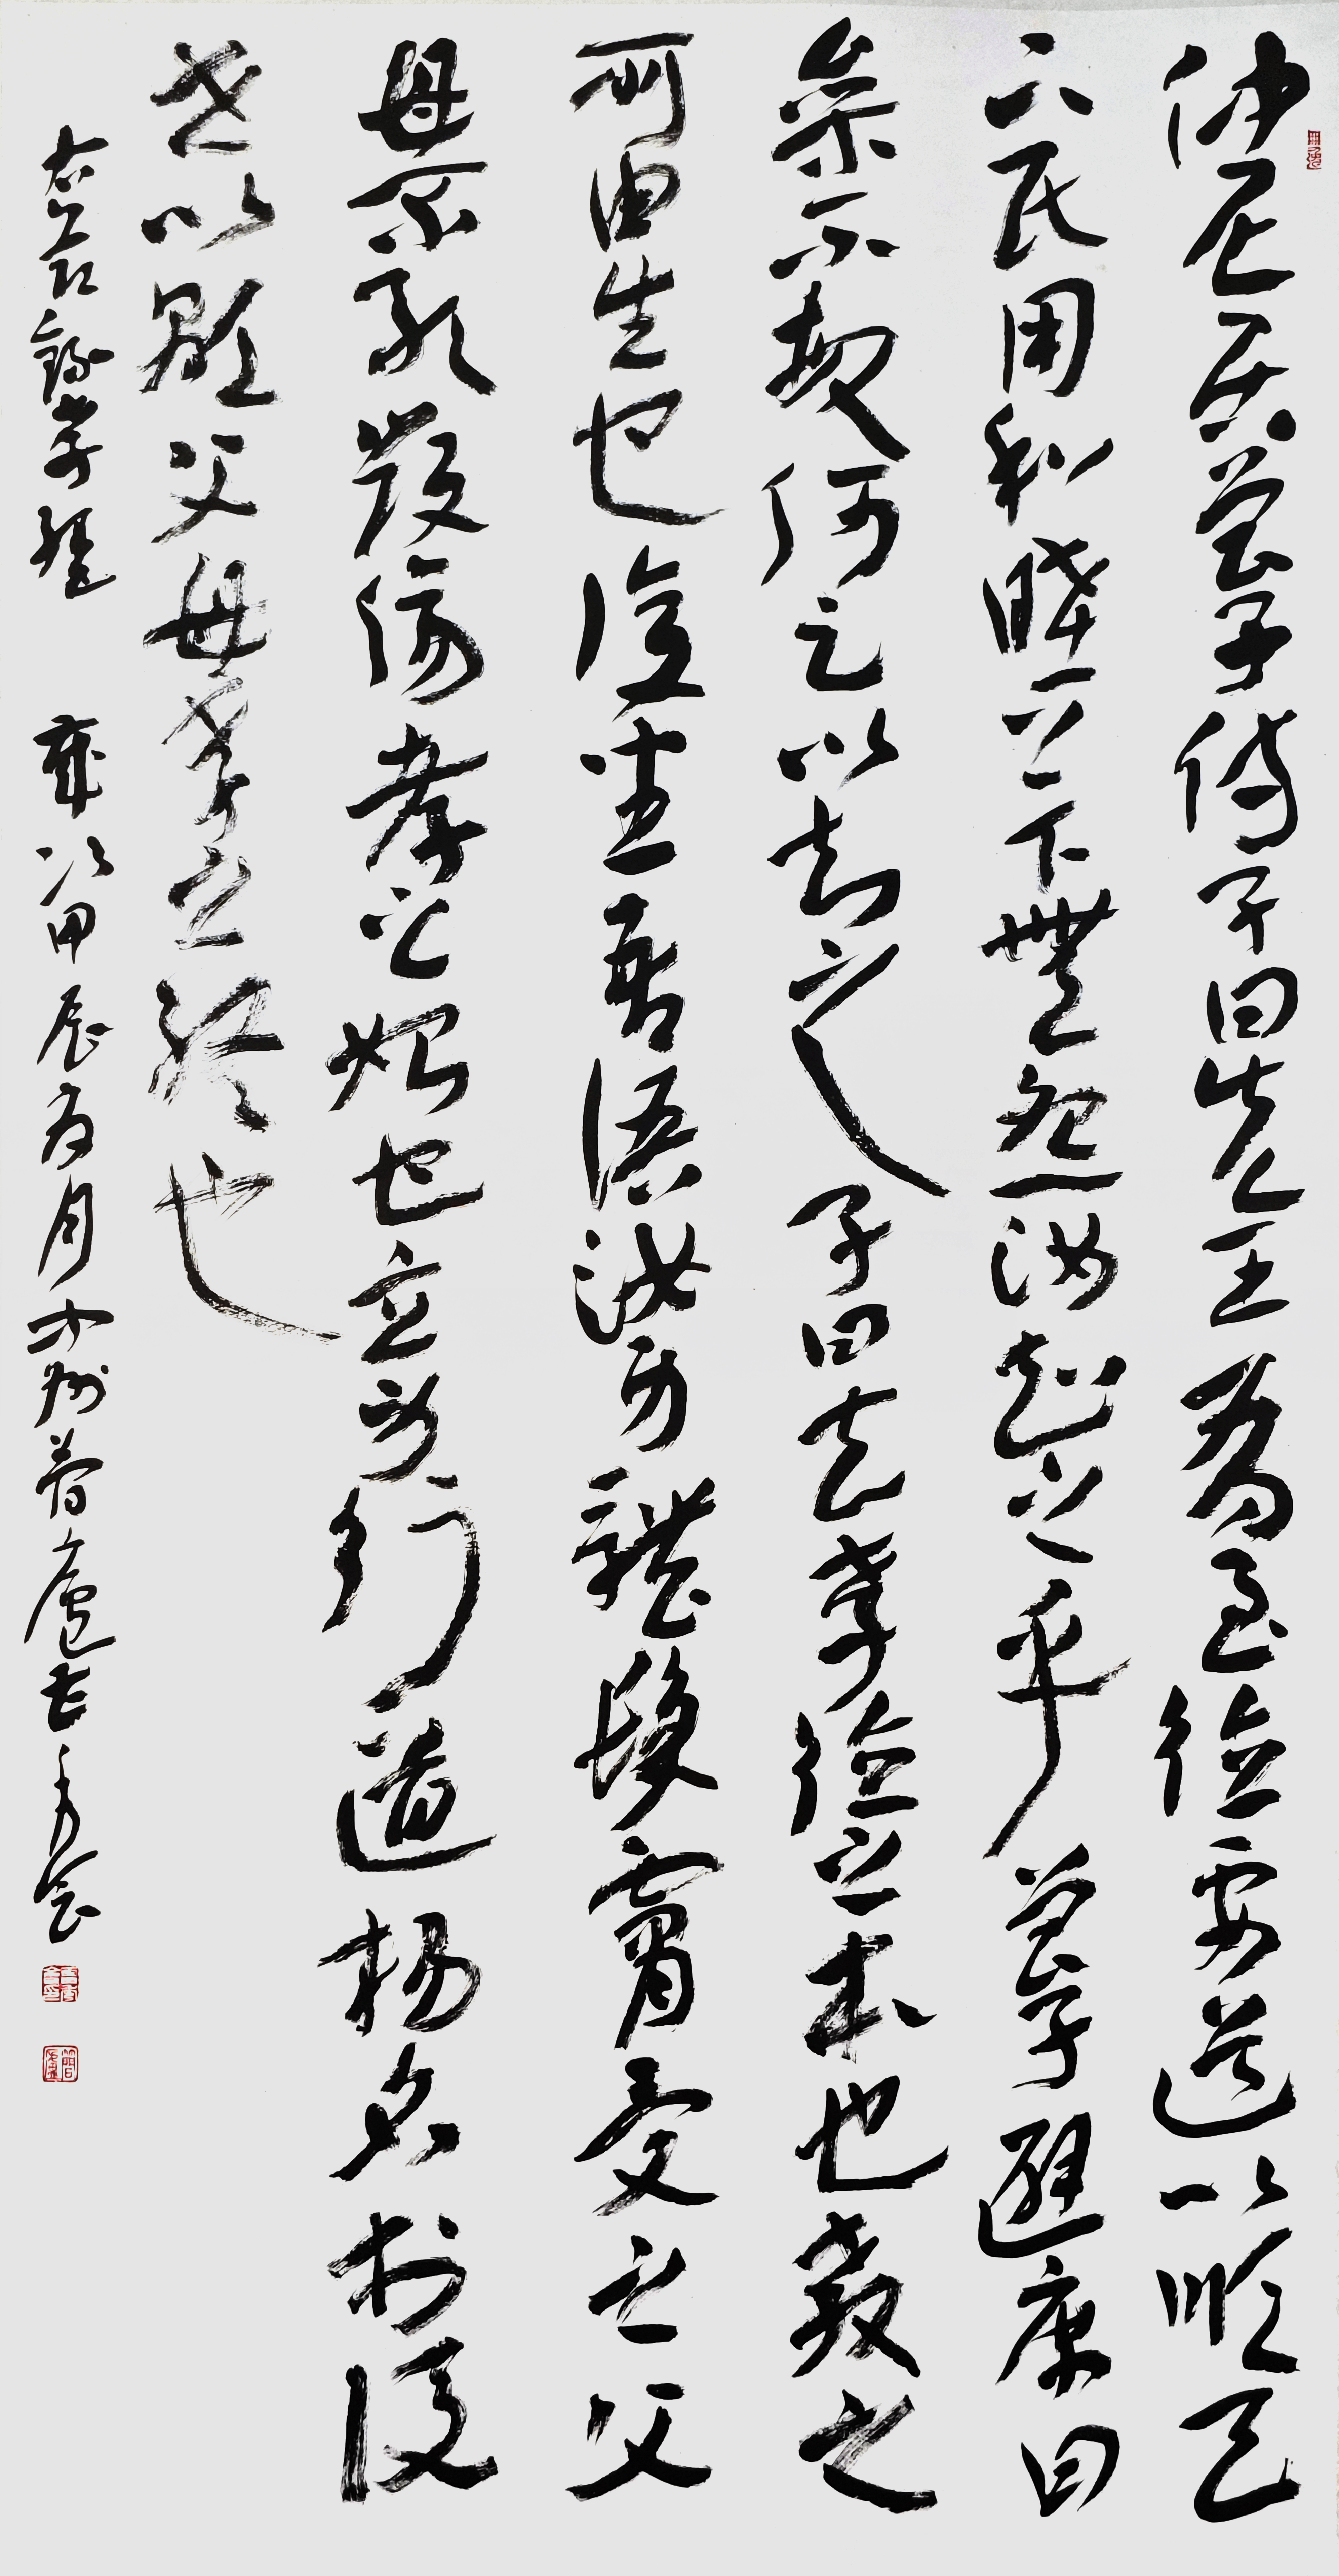 仲尼居曾子侍子曰先王有至德要道以順天
下民用和睦上下無怨汝知之乎曾子避席曰
參不敏何足以知之子曰夫孝德之本也教之
所由生也復坐吾語汝身體髮膚受之父
母不敢毀傷孝之始也立身行道揚名於後
世以顯父母孝之終也
右節錄孝經 歲次甲辰